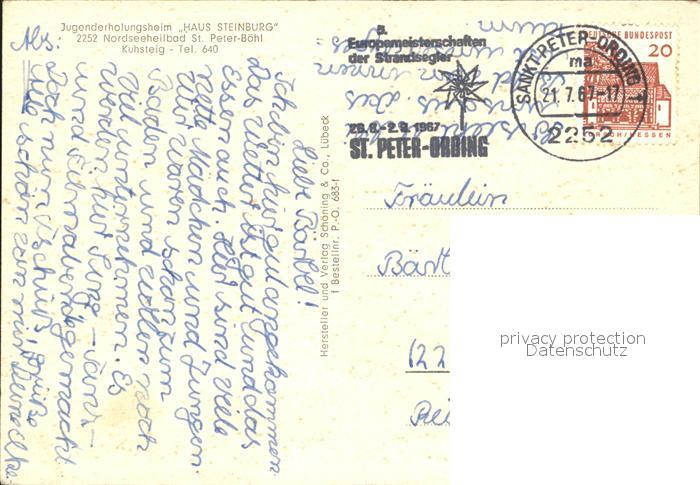 Jugenderholungsheim „HAUS STEINBURG"
2252 Nordseeheilbad St. Peter-Böhl
Kuhsteig - Tel. 640
Liebe Bärbel!
Ich bin hier gut angekommen.
Das Wetter ist gut und das
Essen auch. Hier sind viele
nette Mädchen und Jungen.
Wir waren schon zum
Baden und wollen noch
viel unternehmen. Es
werden hier Sing- Tanz-
und Filmabende gemacht
Doch nun Tschüß, Grüße
alle schön von mir
Hersteller und Verlag Schöning & Co., Lübeck
1 Bestellnr. P.-O. 683-f
5.
Europameisterschaften
der Strandsegler
28.8.-2.9.1967
ST. PETER-ORDING
SANKT PETER-ORDING
ma
21.7.67-17
2252
DEUTSCHE BUNDESPOST
20
LORSCH/HESSEN
Fräulein
Bärb
122
privacy protection
Datenschutz